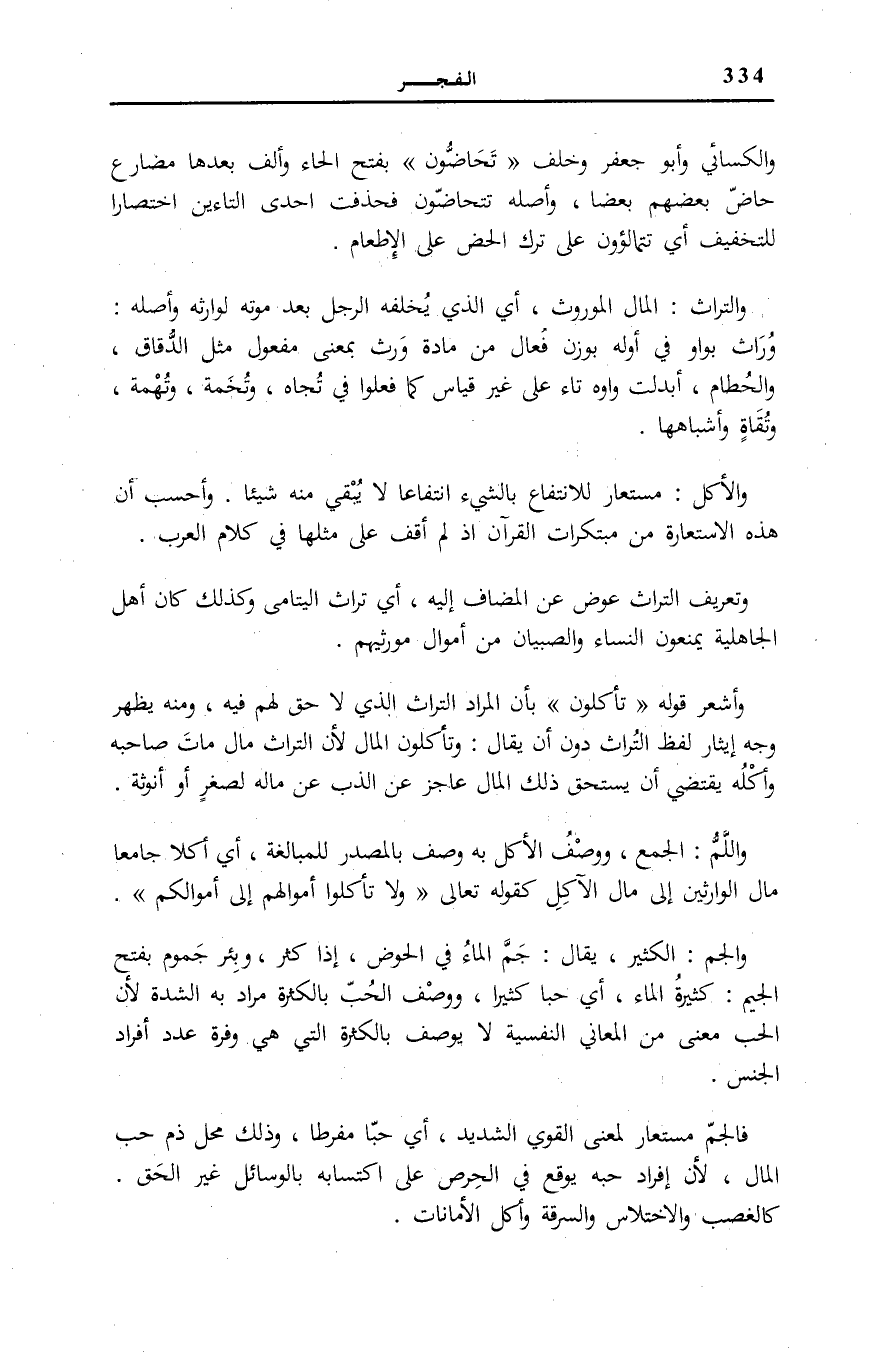 334
الفجـــر
والكسائي وأبو جعفر وخلف « تَحَاضُّون » بفتح الحاء وألف بعدها مضارع
حاضّ بعضهم بعضا ، وأصله تتحاضّون فحذفت احدى التاءين اختصارا
للتخفيف أي تتمالؤون على ترك الحض على الإِطعام .
والتراث : المال الموروث ، أي الذي يُخلفه الرجل بعد موته لوارثه وأصله :
وُرَاث بواو في أوله بوزن فُعال من مادة وَرث بمعنى مفعول مثل الدُّقاق ،
والحُطام ، أبدلت واوه تاء على غير قياس كما فعلوا في تُجاه ، وتُخَمة ، وتُهْمة ،
وتُقَاةٍ وأشباهها .
والأكل : مستعار للانتفاع بالشيء انتفاعا لا يُبْقي منه شيئا . وأحسب أن
هذه الاستعارة من مبتكرات القرآن اذ لم أقف على مثلها في كلام العرب .
وتعريف التراث عوض عن المضاف إليه ، أي تراث اليتامى وكذلك كان أهل
الجاهلية يمنعون النساء والصبيان من أموال مورثيهم .
وأشعر قوله « تأكلون » بأن المراد التراث الذي لا حق لهم فيه ، ومنه يظهر
وجه إيثار لفظ التُراث دون أن يقال : وتأكلون المال لأن التراث مال ماتَ صاحبه
وأكْلُه يقتضي أن يستحق ذلك المال عاجز عن الذب عن ماله لصغرٍ أو أنوثة .
واللَّمُّ : الجمع ، ووصْفُ الأكل به وصف بالمصدر للمبالغة ، أي أكلا جامعا
مال الوارثين إلى مال الآكِلِ كقوله تعالى « ولا تأكلوا أموالهم إلى أموالكم » .
والجم : الكثير ، يقال : جَمَّ الماءُ في الحوض ، إذا كثر ، وبِئر جَموم بفتح
الجيم : كثيرةُ الماء ، أي حبا كثيرا ، ووصْف الحُبّ بالكثرة مراد به الشدة لأن
الحب معنى من المعاني النفسية لا يوصف بالكثرة التي هي وفرة عدد أفراد
الجنس .
فالجمّ مستعار لمعنى القوي الشديد ، أي حبّا مفرطا ، وذلك محل ذم حب
المال ، لأن إفراد حبه يوقع في الحِرص على اكتسابه بالوسائل غير الحَق .
كالغصب والاختلاس والسرقة وأكل الأمانات .